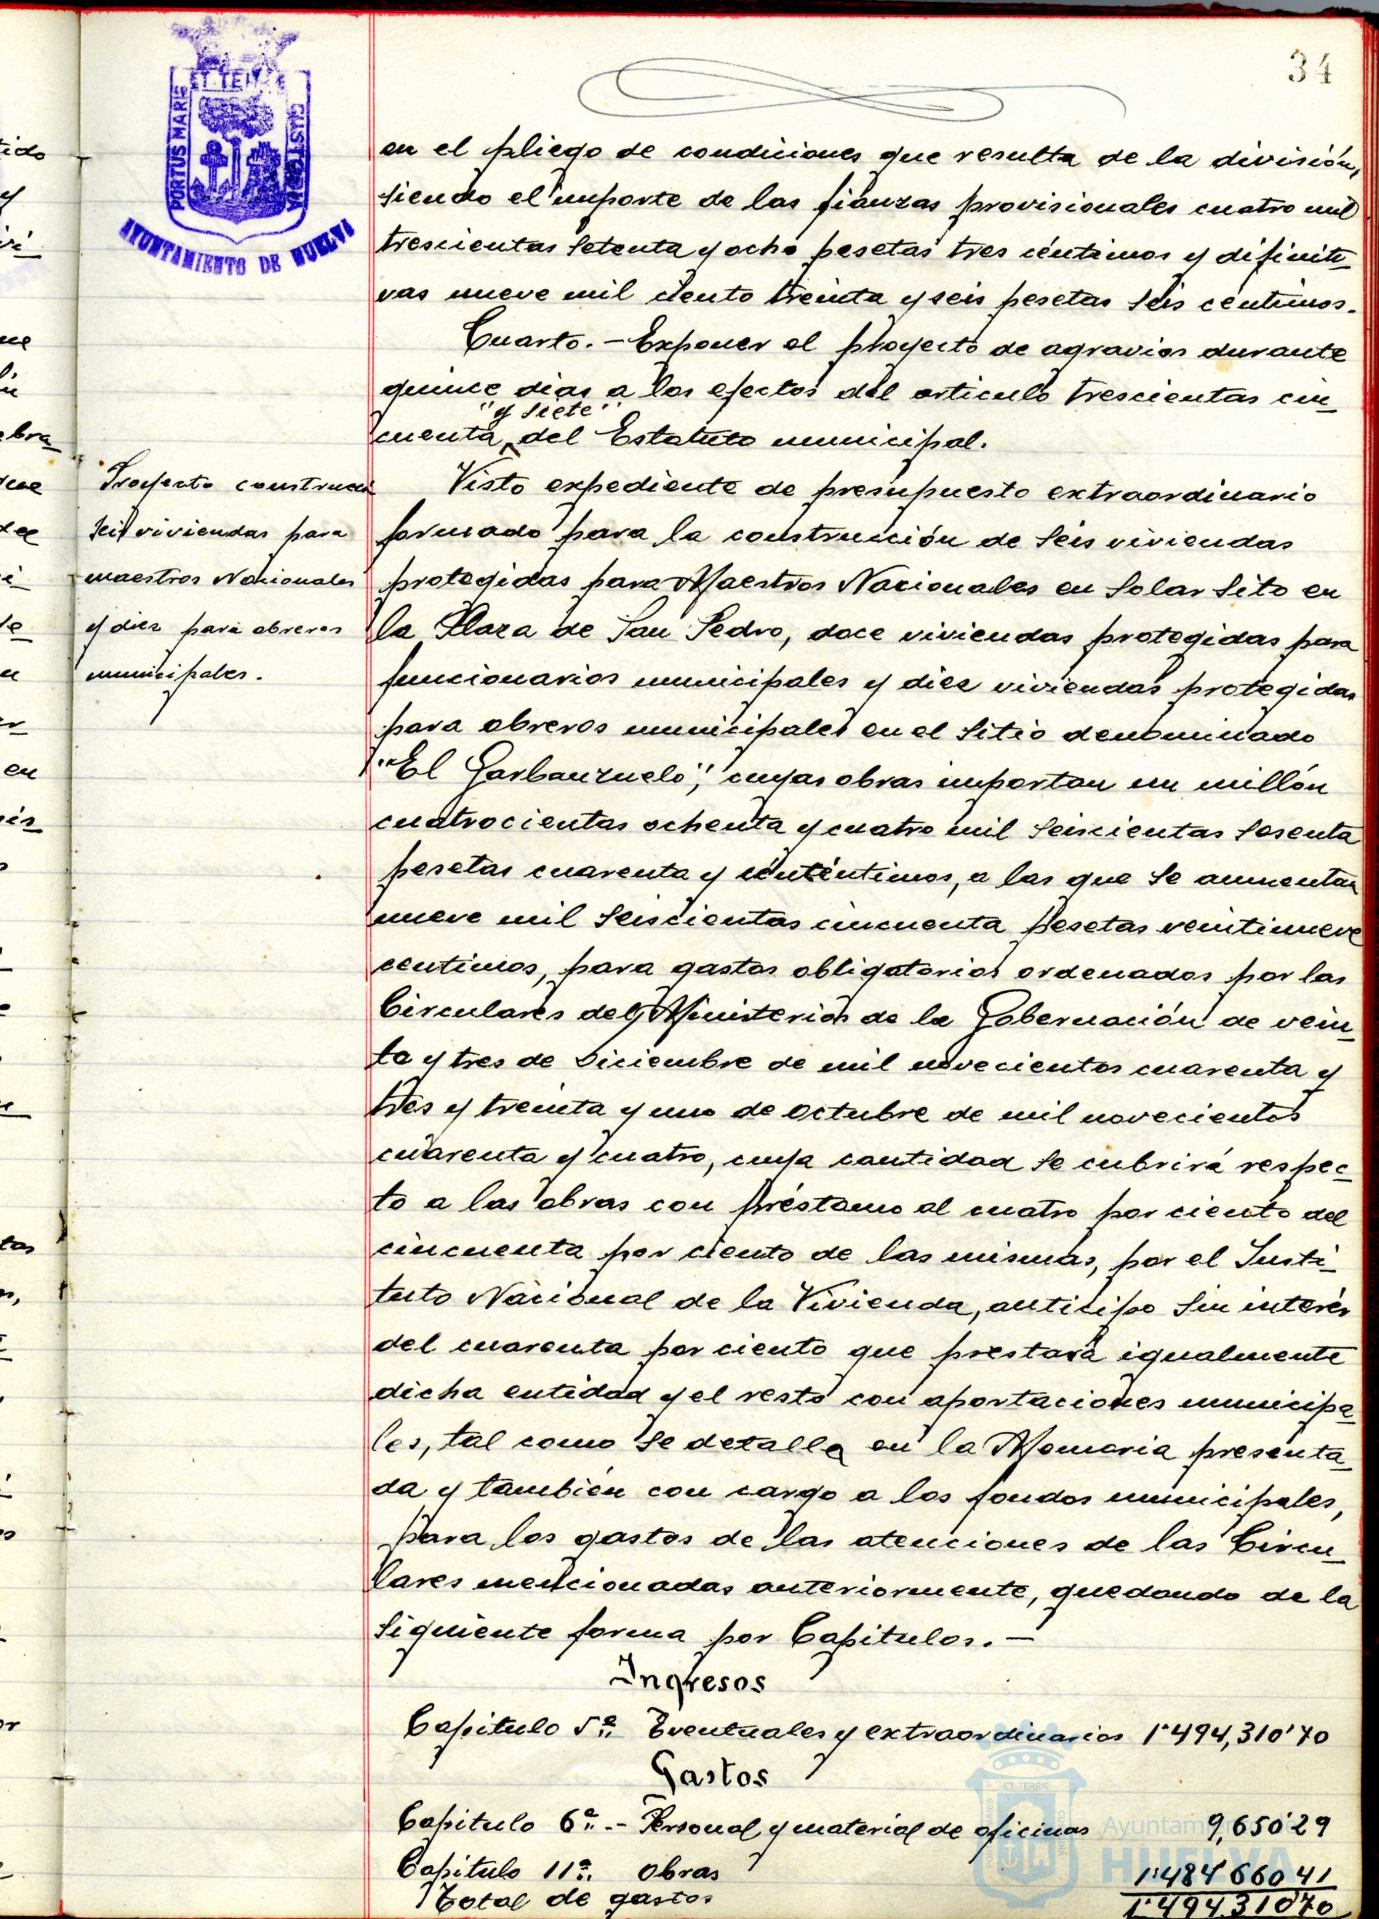 34
ET TERRÆ
PORTUS MARIS
CUSTODIA
AYUNTAMIENTO DE HUELVA
en el pliego de condiciones que resulta de la división,
siendo el importe de las fianzas provisionales cuatro mil
trescientas setenta y ocho pesetas tres céntimos y difiniti-
vas nueve mil ciento treinta y seis pesetas seis centimos.
Cuarto. - Exponer el proyecto de agravios durante
quince dias a los efectos del articulo trescientas cin-
"y siete"
cuenta del Estatuto municipal.
Proyecto construcci
seis viviendas para
maestros Nacionales
y diez para obreros
municipales.
Visto expediente de presupuesto extraordinario
formado para la construcción de seis viviendas
protegidas para Maestros Nacionales en solar sito en
la Plaza de San Pedro, doce viviendas protegidas para
funcionarios municipales y diez viviendas protegidas
para obreros municipales en el sitio denominado
"El Garbanzuelo", cuyas obras importan un millón
cuatrocientas ochenta y cuatro mil seiscientas sesenta
pesetas cuarenta y céntimos, a las que se aumentan
nueve mil seiscientas cincuenta pesetas veintinueve
centimos, para gastos obligatorios ordenados por las
Circulares del Ministerios de la Gobernación de vein-
te y tres de Diciembre de mil novecientos cuarenta y
tres y treinta y uno de octubre de mil novecientos
cuarenta y cuatro, cuya cantidad se cubrirá respec-
to a las obras con préstamo al cuatro por ciento del
cincuenta por ciento de las mismas, por el Insti-
tuto Nacional de la Vivienda, anticipo sin interés
del cuarenta por ciento que prestará igualmente
dicha entidad y el resto con aportaciones municipa-
les, tal como se detalla en la Memoria presenta-
da y también con cargo a los fondos municipales,
para los gastos de las atenciones de las Circu-
lares mencionadas anteriormente, quedando de la
siguiente forma por Capitulos. -
Ingresos
Capitulo 5º Eventuales y extraordinarios 1'494,310'70
Gastos
Capitulo 6º - Personal y material de oficinas 9,650'29
Capitulo 11º obras 1'484'660 41
Total de gastos 1'494.310'70
Ayuntamiento
HUELVA